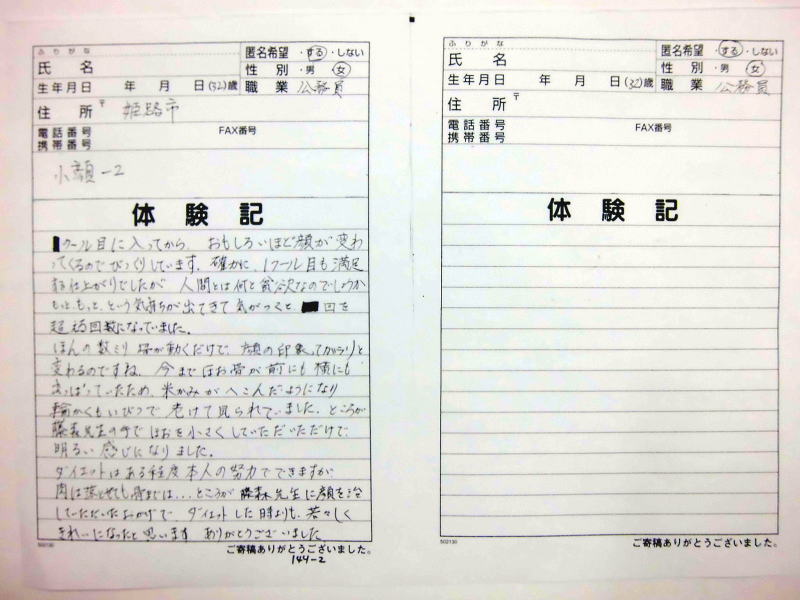 ふりがな
氏 名
匿名希望 ・する・しない
性 別 ・男 女
生年月日 年 月 日(32)歳
職 業 公務員
住 所 〒 姫路市
電話番号 FAX番号
携帯番号
小顔-2
体 験 記
クール目に入ってから、おもしろいほど顔が変わ
ってくるのでびっくりしています。確かに、1クール目も満足
する仕上がりでしたが 人間とは何と貪欲なのでしょうか
もっと、もっと、という気持ちが出てきて 気がつくと 回を
超える回数になっていました。
ほんの数ミリ 骨が動くだけで、顔の印象ってがらりと
変わるのですね。今までほお骨が前にも横にも
出っぱっていたため、米かみがへこんだようになり
輪かくもいびつで 老けて見られていました。ところが
藤森先生の手でほおを小さくしていただいただけで、
明るい感じになりました。
ダイエットはある程度本人の努力でできますが
肉は落とせても骨までは...ところが 藤森先生に顔を
していただいたおかげで、ダイエットした時よりも、若々しく
きれいになったと思います ありがとうございました。
502130
ご寄稿ありがとうございました。
144-2
ふりがな
氏 名
匿名希望 ・する・しない
性 別 ・男 女
生年月日 年 月 日(32)歳
職 業 公務員
住 所 〒
電話番号 FAX番号
携帯番号
体 験 記
502130
ご寄稿ありがとうございました。